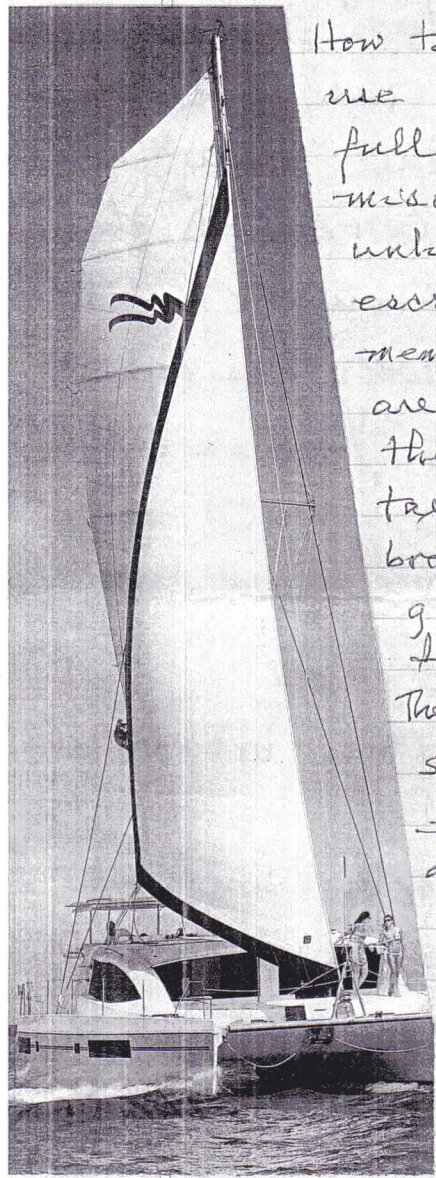 How to
use
full
mis
unk
esc
mem
are
the
tax
bro
g
The
s